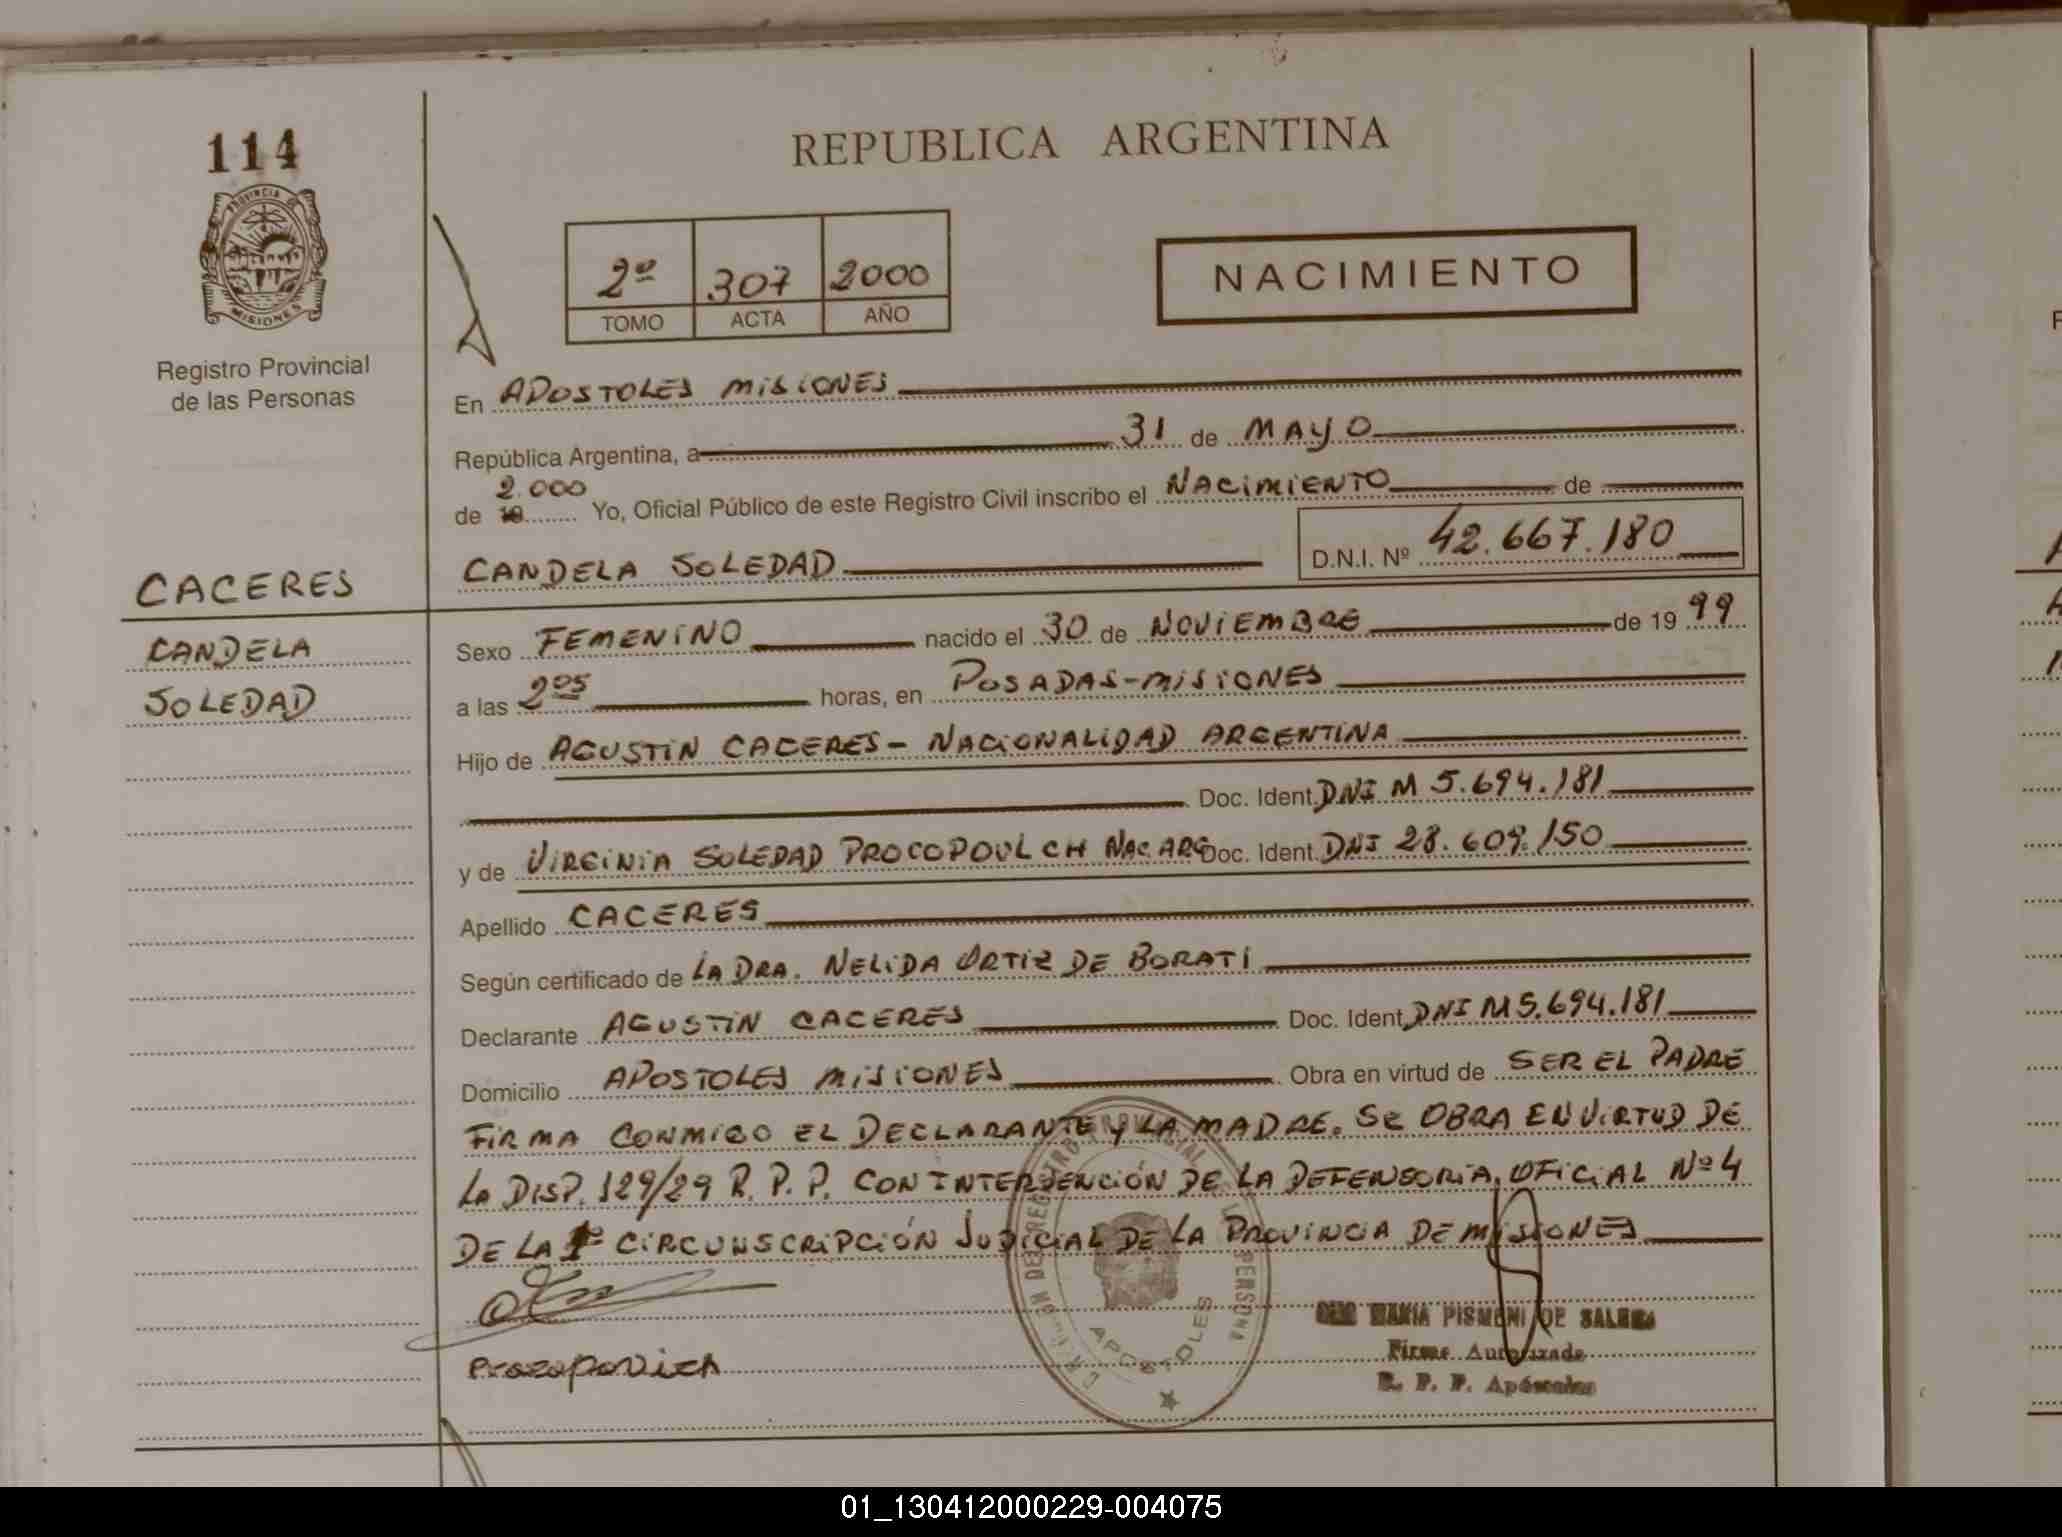 114
PROVINCIA DE
MISIONES
Registro Provincial
de las Personas
CACERES
CANDELA
SOLEDAD
REPUBLICA ARGENTINA
2º 307 2000
TOMO ACTA AÑO
NACIMIENTO
En APOSTOLES MISIONES
República Argentina, a 31 de MAYO
2.000
de 19 Yo, Oficial Público de este Registro Civil inscribo el NACIMIENTO de
CANDELA SOLEDAD D.N.I. Nº 42.667.180
Sexo FEMENINO nacido el 30 de NOVIEMBRE de 19 99
a las 2 05 horas, en POSADAS-MISIONES
Hijo de AGUSTIN CACERES - NACIONALIDAD ARGENTINA
Doc. Ident. DNI M 5.694.181
y de VIRGINIA SOLEDAD NAC ARG Doc. Ident. DNI 28.609.150
Apellido CACERES
Según certificado de LA DRA. NELIDA ORTIZ DE BORATI
Declarante AGUSTIN CACERES Doc. Ident. DNI M 5.694.181
Domicilio APOSTOLES MISIONES Obra en virtud de SER EL PADRE
FIRMA CONMIGO EL DECLARANTE Y LA MADRE. SE OBRA EN VIRTUD DE
LA DISP. 129/29 R. P. P. CON INTERVENCIÓN DE LA DEFENSORIA OFICIAL Nº 4
DE LA 1º CIRCUNSCRIPCIÓN JUDICIAL DE LA PROVINCIA DE MISIONES
MARIA PISMENI DE
Firma Autorizada
R. P. P. Apóstoles
APOSTOLES
01_130412000229-004075